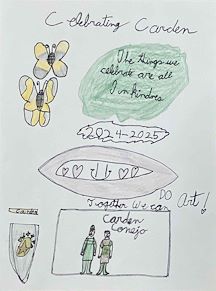 Celebrating Carden
The things we
celebrate are all
in kindness
2024-2025
Together We can DO Art!
Carden
Conejo